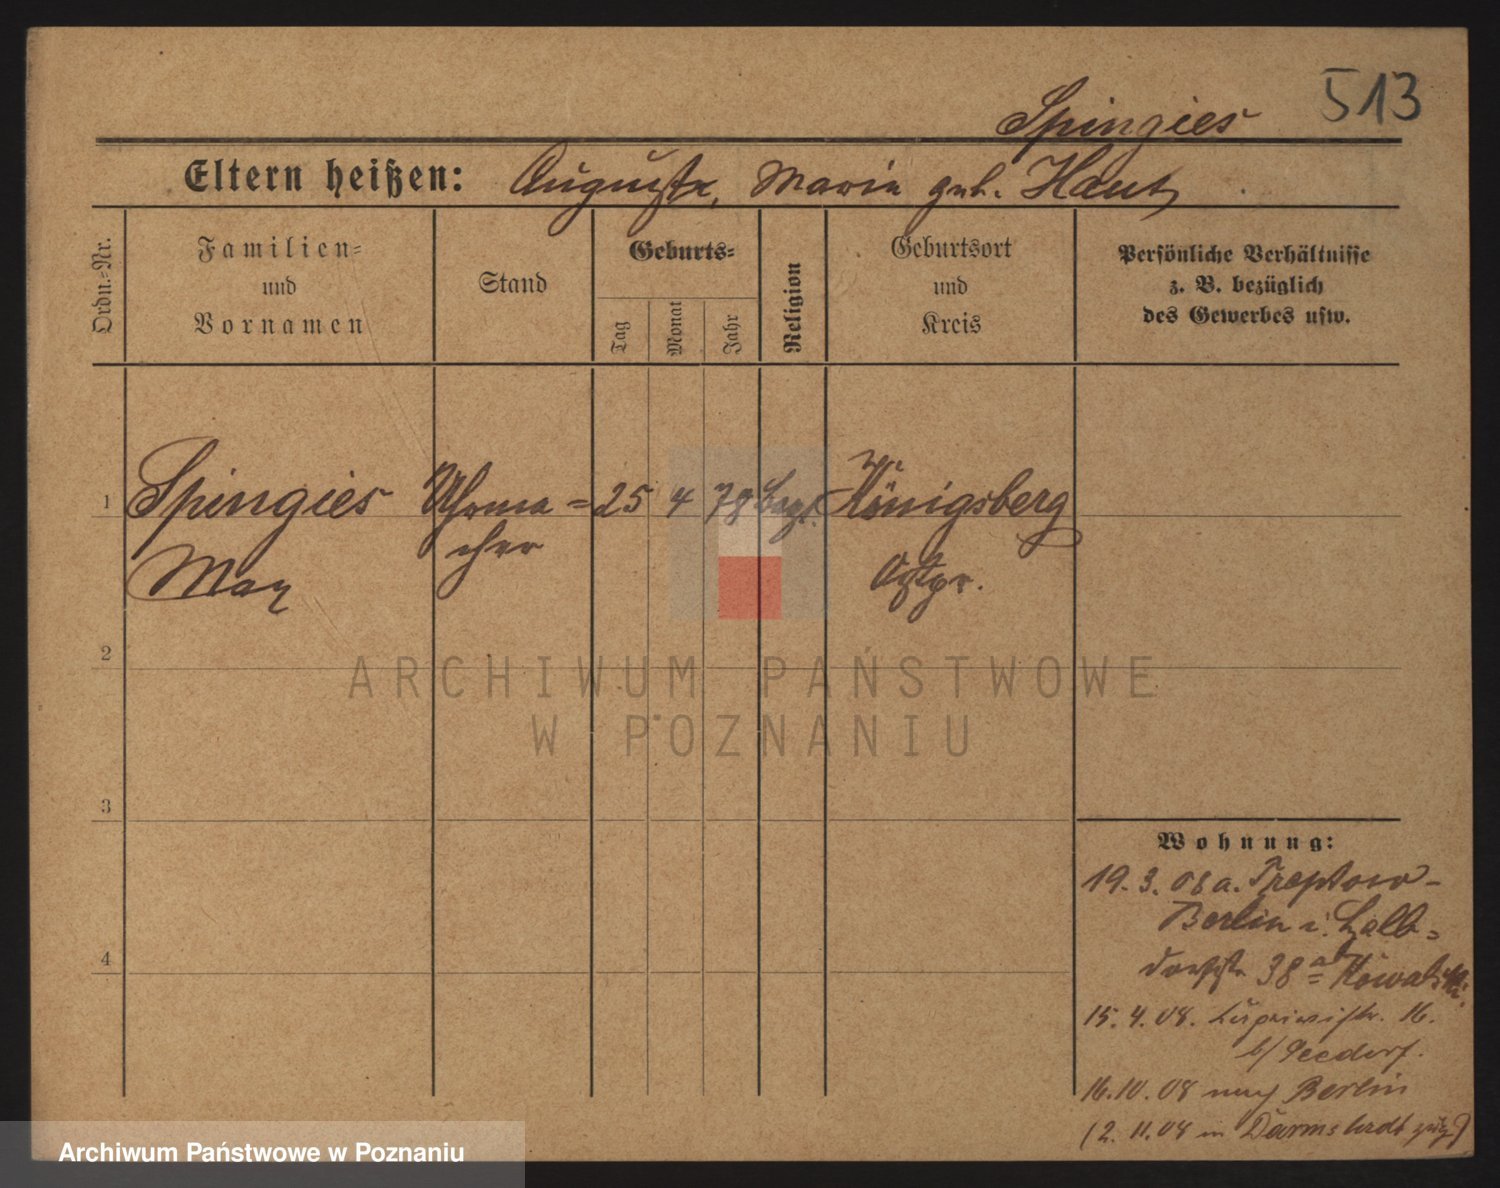 513
Spingies
Eltern heißen: Auguste, Maria geb. Haut
Ordn.-Nr.
Familien-
und
Vornamen
Stand
Geburts-
Tag
Monat
Jahr
Religion
Geburtsort
und
Kreis
Persönliche Verhältnisse
z. B. bezüglich
des Gewerbes usw.
1
Spingies
Max
Uhrma=
cher
25
4
78
Königsberg
Ostpr.
2
3
4
Wohnung:
19. 3. 08 a. Treptow-
Berlin
38a Kowalski.
15. 4. 08. 16.
b/ Seedorf.
16.10. 08 nach Berlin
(2. 11. 08 in Darmstadt
ARCHIWUM PAŃSTWOWE
W POZNANIU
Archiwum Państwowe w Poznaniu